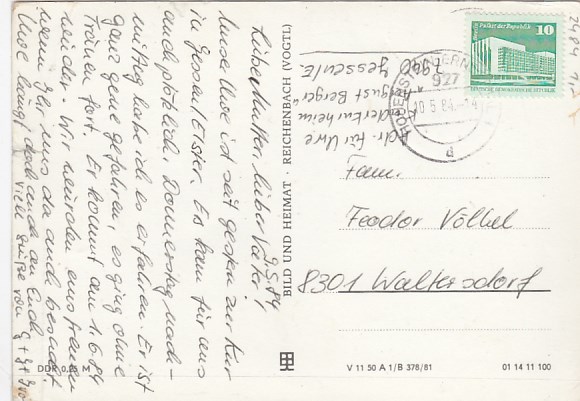 9.5.84
Liebe Mutter, lieber Vater!
Unser Uwe ist seit gestern zur Kur
in Jessen/Elster. Es kam für uns
auch plötzlich. Donnerstag nach-
mittag habe ich es erfahren. Er ist
ganz gerne gefahren, es ging ohne
Tränen fort. Er kommt am 1.6.84
wieder. Wir würden uns freuen
wenn Ihr uns da auch besucht
Uwe bangt doch auch an Euch
Viele Grüße von
DDR 0,25 M
BILD UND HEIMAT · REICHENBACH (VOGTL)
Adr. für Uwe
Kinderkurheim
"August Berger"
7940 Jessen/E.
10
DEUTSCHE DEMOKRATISCHE REPUBLIK
927
10.5.84
a
Fam.
Feodor Völkel
8301 Waltersdorf
V 11 50 A 1/B 378/81
01 14 11 100